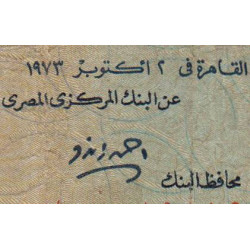 القاهرة فى ٢ أكتوبر ١٩٧٣
عن البنك المركزى المصرى
محافظ البنك